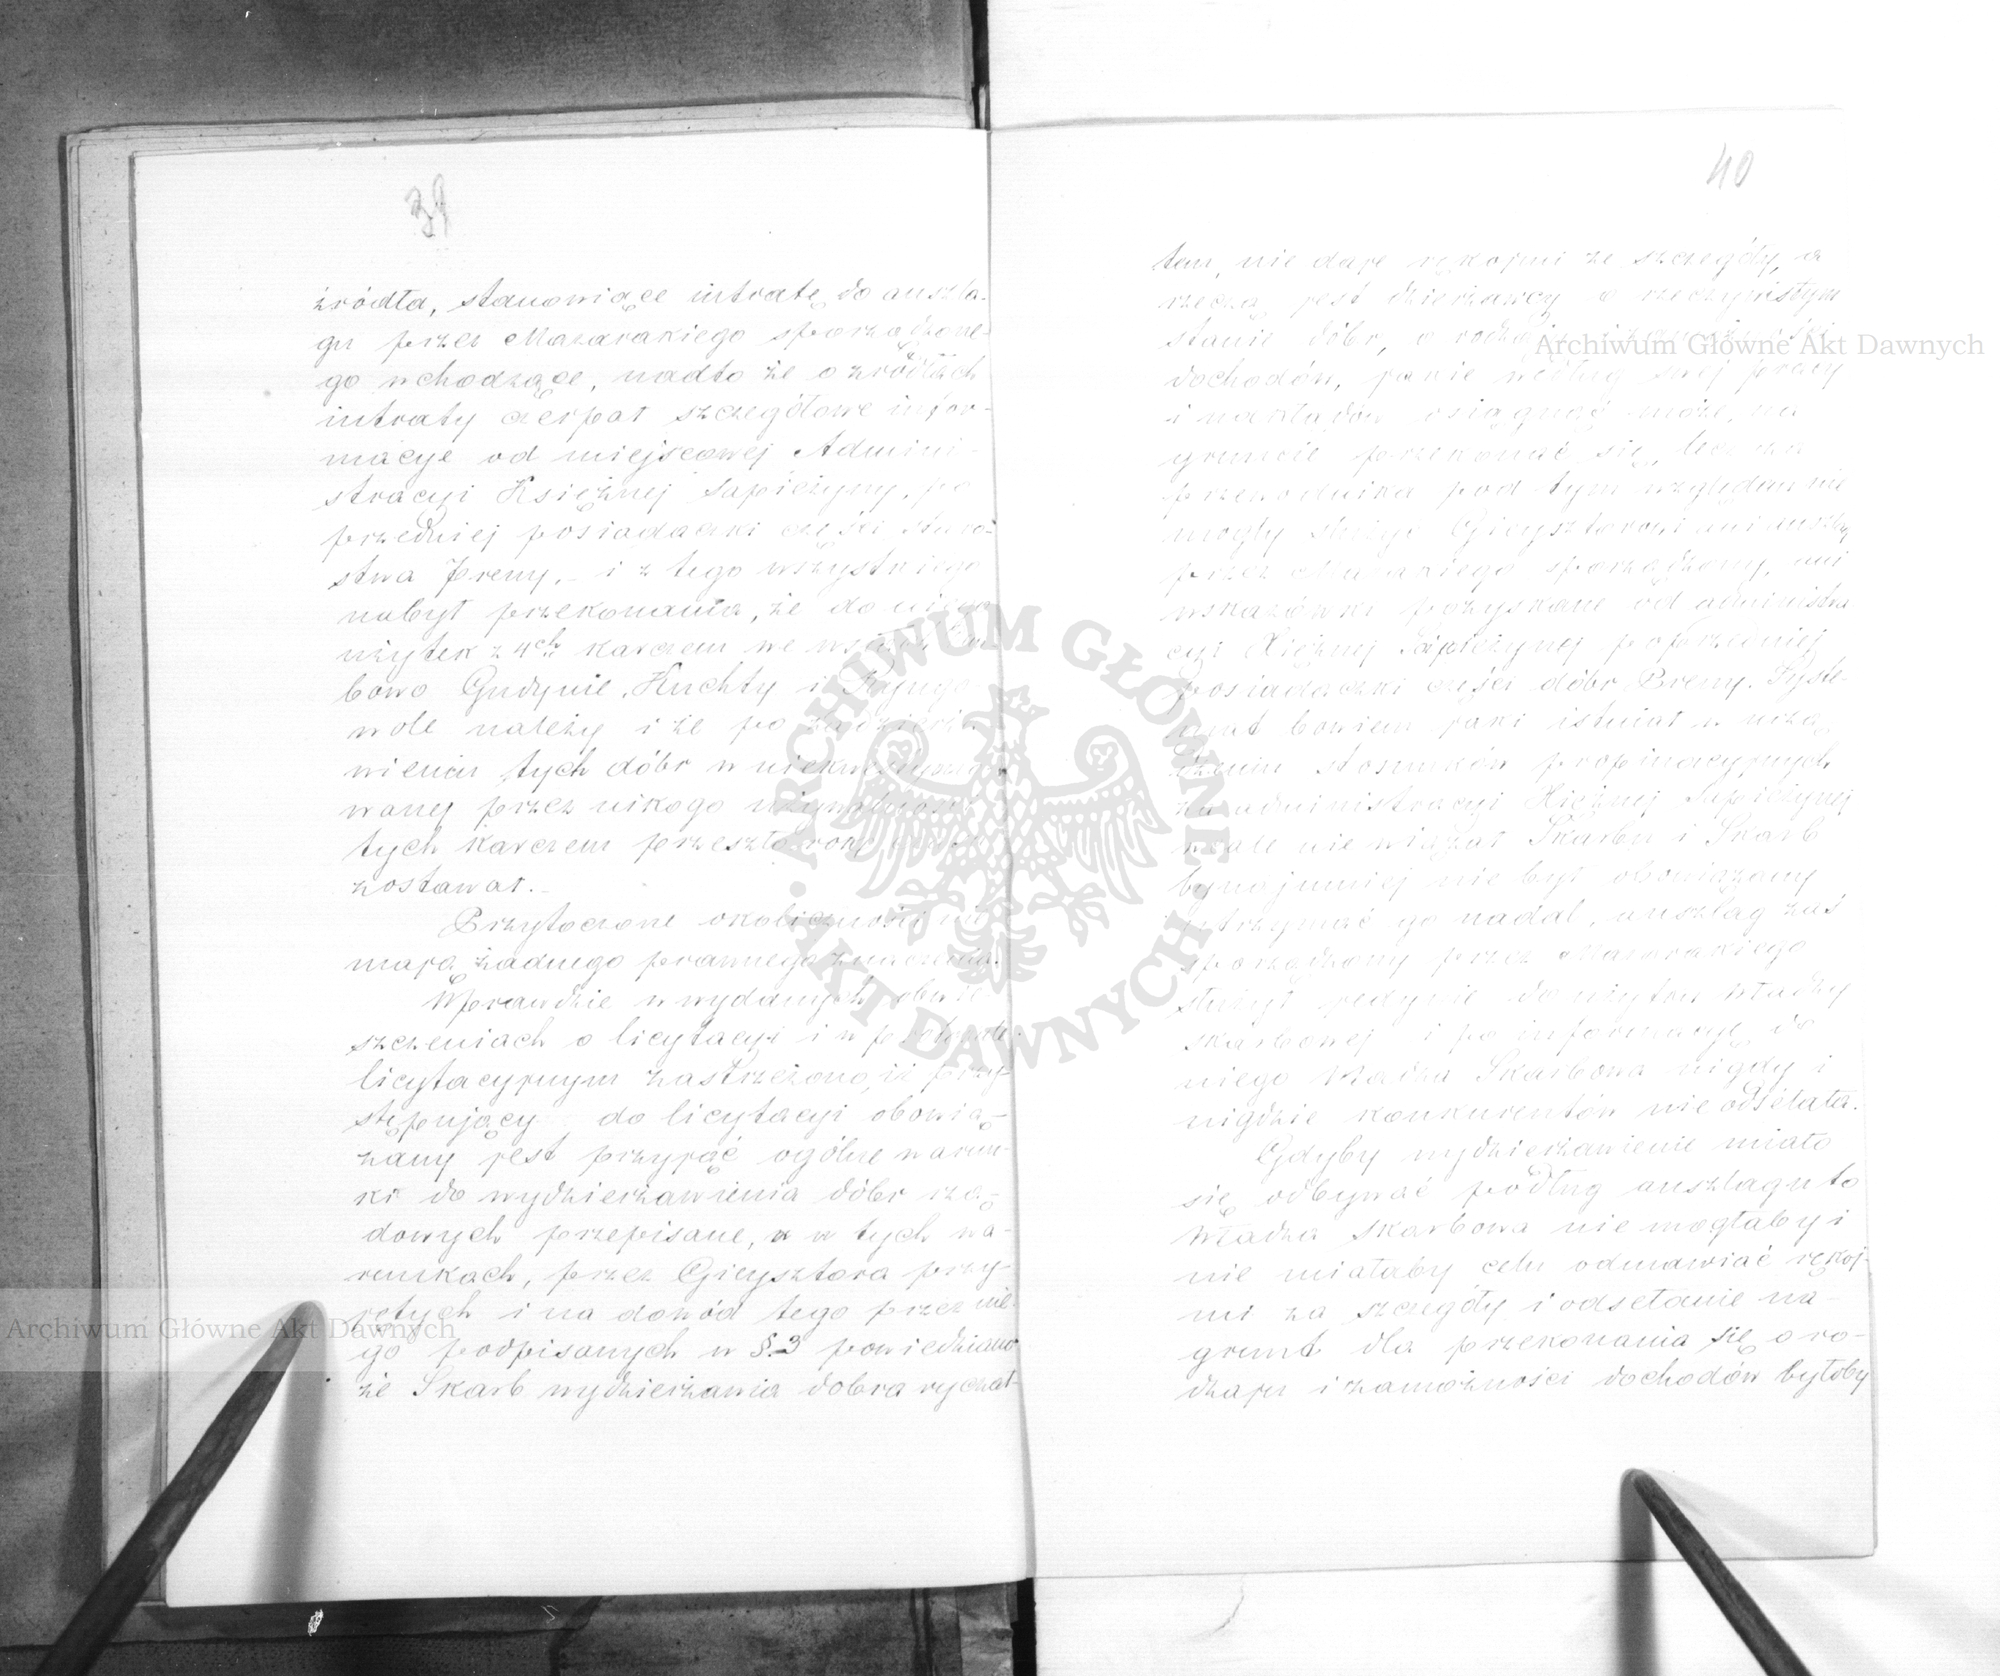 39
źródła, stanowiące intratę do auszla-
gu przez Mazarakiego sporządzone-
go wchodzące, nadto że o źródłach
intraty czerpał szczegółowe infor-
macye od miejscowej Admini-
stracyi Księżnej Sapieżyny, po
przedniej posiadaczki części staro-
stwa Preny, - i z tego wszystkiego
nabył przekonania, że do niego
użytek z 4ch karczem we wsiach
bowo Gudynie, Kuchty i
wole należy i że po wydzierża-
wieniu tych dóbr w
wanej przez nikogo używalności
tych karczem przeszło rok
zostawał.-
Przytoczone okoliczności nie
mają żadnego prawnego znaczenia.
Wprawdzie w wydanych obwie-
szczeniach o licytacyi i w protokule
licytacyjnym zastrzeżono, iż przy-
stępujący do licytacyi obowią-
zany jest przyjąć ogólne warun-
ki do wydzierżawienia dóbr rzą-
dowych przepisane, w tych wa-
runkach, przez Giejsztora przy-
jętych i na dowód tego przez nie-
go podpisanych w §.3 powiedziano
że Skarb wydzierżawia dobra ryczał-
40
tem, nie daje rękojmi za szczegóły, a
rzeczą jest dzierżawcy o rzeczywistym
stanie dóbr, o
dochodów, jakie według swej pracy
i nakładów osiągnąć może, na
gruncie przekonać się, lecz za
przewodnika pod tym względem nie
mogły służyć Giejsztorowi ani auszlag
przez Mazarakiego sporządzony, ani
wskazówki pozyskane od administra
cyi Xiężnej Sapieżynej poprzedniej
posiadaczki części dóbr Preny. Syste-
mat bowiem jaki istniał w urzą
dzeniu stosunków propinacyjnych
za administracyi Xiężnej Sapieżynej
wcale nie wiązał Skarbu i Skarb
bynajmniej nie był obowiązany
utrzymać go nadal, auszlag zaś
sporządzony przez Mazarakiego
służył jedynie do użytku Władzy
skarbowej i po informacyę do
niego Władza Skarbowa nigdy i
nigdzie konkurentów nie odsełała.
Gdyby wydzierżawienie miało
się odbywać podług auszlagu to
Władza skarbowa nie mogłaby i
nie miałaby celu odmawiać rękoj-
mi za szczegóły i odsełanie na-
grunt dla przekonania się o ro-
dzaju i zamożności dochodów byłoby
Archiwum Główne Akt Dawnych
Archiwum Główne Akt Dawnych
ARCHIWUM GŁÓWNE
AKT DAWNYCH